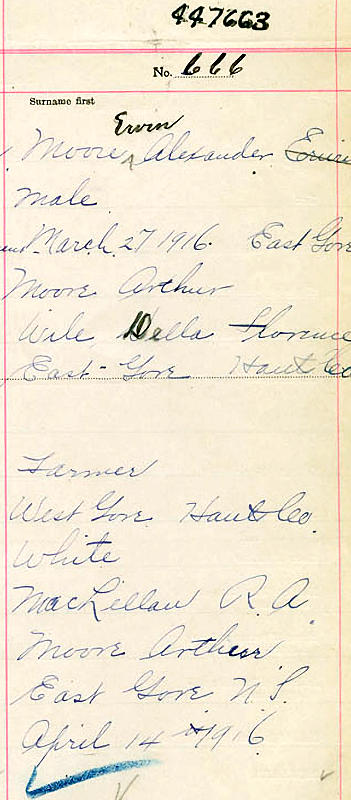 447663
No. 666
Surname first
Erwin
Moore Alexander
Male
March 27 1916. East Gore
Moore Arthur
Wile Della Florence
East Gore Hants Co
Farmer
West Gore Hants Co.
White
MacLellan R. A.
Moore Arthur
East Gore N.S.
April 14th 1916